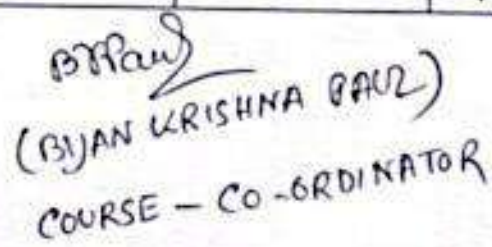 BKPaul
(BIJAN KRISHNA PAUL)
COURSE - CO-ORDINATOR